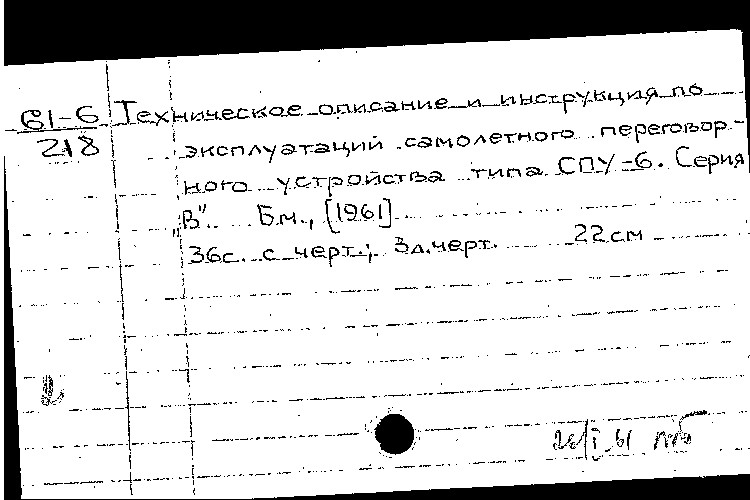 61-6 Техническое описание и инструкция по
218 эксплуатаций самолетного переговор-
ного устройства типа СПУ-6. Серия
„В". Б.м., [1961]
36с. с черт.; 3л.черт. 22см